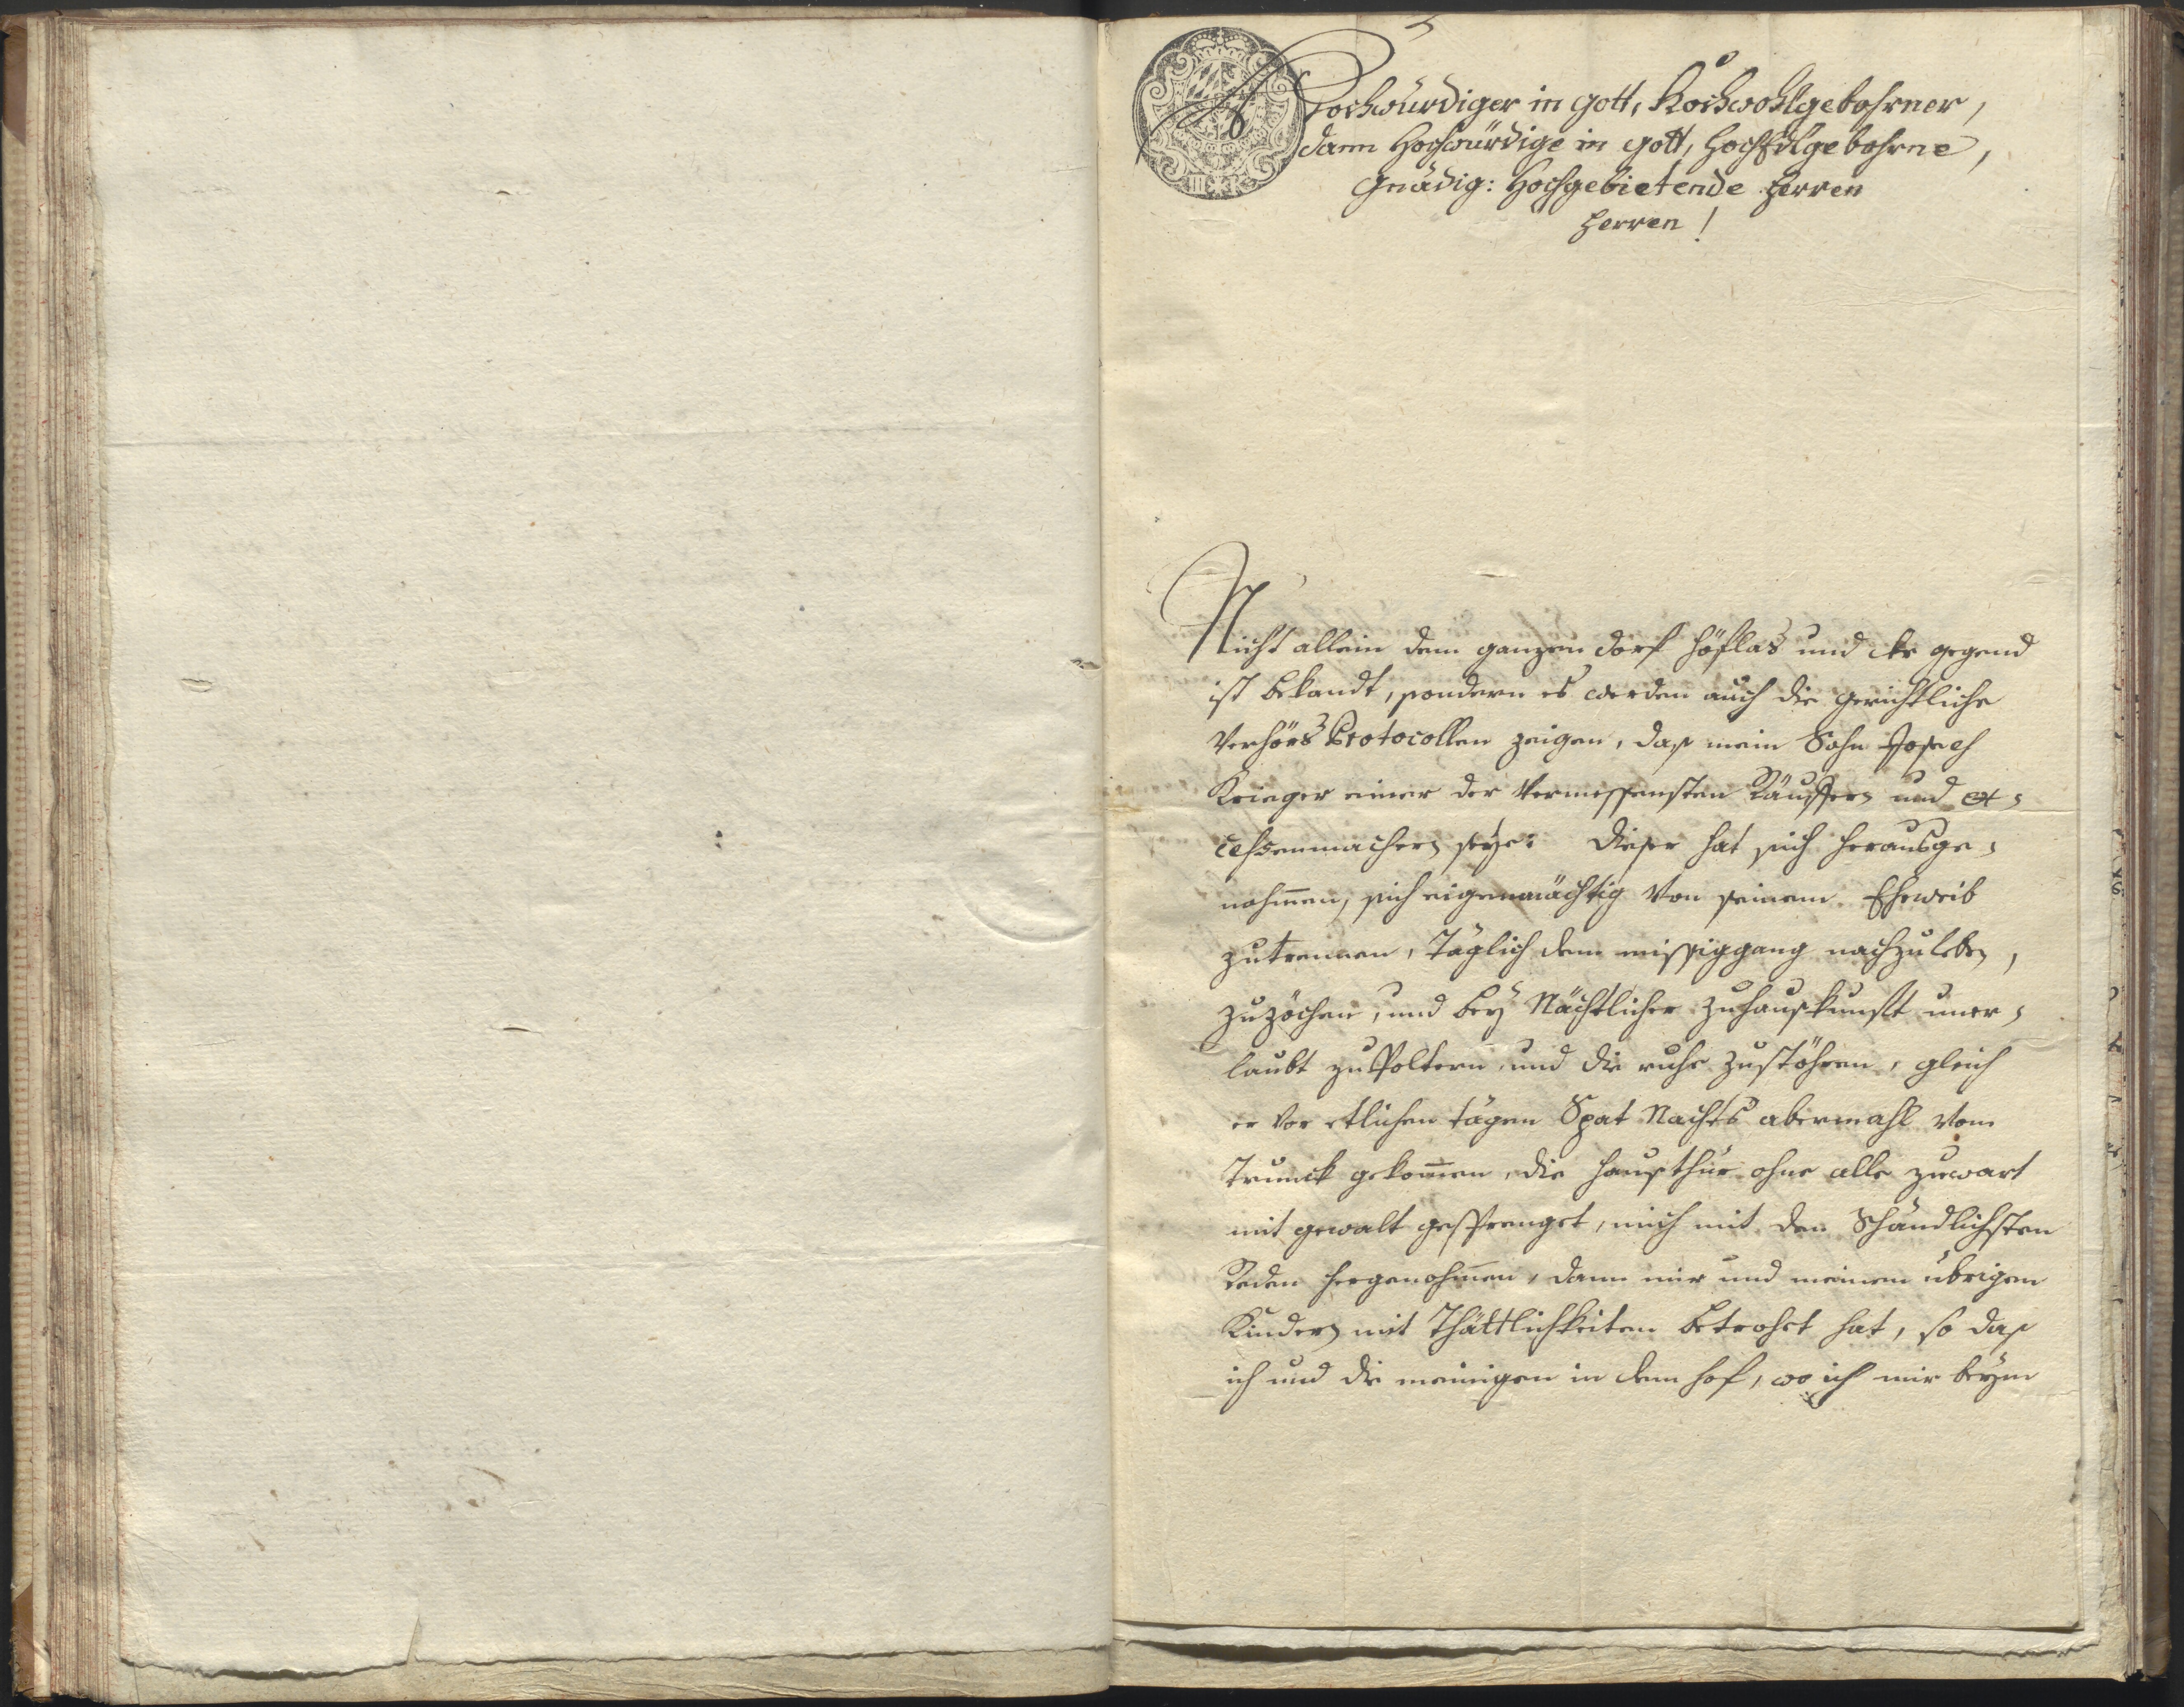 Hochwürdiger in Gott, Hochwohlgebohrner,
dann Hochwürdige in Gott, HochEdlgebohrne,
Gnädig: Hochgebietende Herren
Herren!
Nicht allein dem ganzen dorf Höflas und der gegend
ist bekandt, sondern es werden auch die gerichtliche
Verhörs Protocollen zeigen, daß mein Sohn Joseph
Krieger einer der Vermessensten Räuffern und ex¬
cessenmachern seye: dieser hat sich herausge¬
nohmen, sich eigenmächtig von seinem Eheweib
zutrennen, Täglich dem missiggang nachzuleben,
zuzöchen, und bey Nächtlicher zuhauskunft uner¬
laubt zu Poltern und die ruhe zustöhren, gleich
er vor etlichen tägen Spat Nachts abermahl vom
Trunck gekommen, die hausthür ohne alle zuwart
mit gewalt gesprenget, mich mit den Schändlichsten
Reden hergenohmen, dann mir und meinen übrigen
Kindern mit Thättlichkeiten betrohet hat, so daß
ich und die meinigen in dem hof, wo ich mir beym